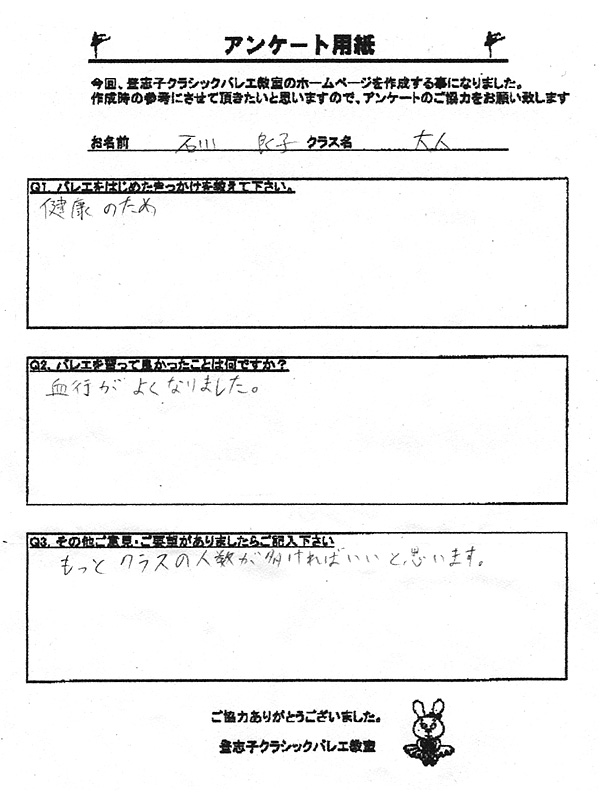 アンケート用紙
今回、登志子クラシックバレエ教室のホームページを作成する事になりました。
作成時の参考にさせて頂きたいと思いますので、アンケートのご協力をお願い致します
お名前 石川 良子 クラス名 大人
Q1. バレエをはじめたきっかけを教えて下さい。
健康のため
Q2. バレエを習って良かったことは何ですか？
血行がよくなりました。
Q3. その他ご意見・ご要望がありましたらご記入下さい
もっとクラスの人数が多ければいいと思います。
ご協力ありがとうございました。
登志子クラシックバレエ教室